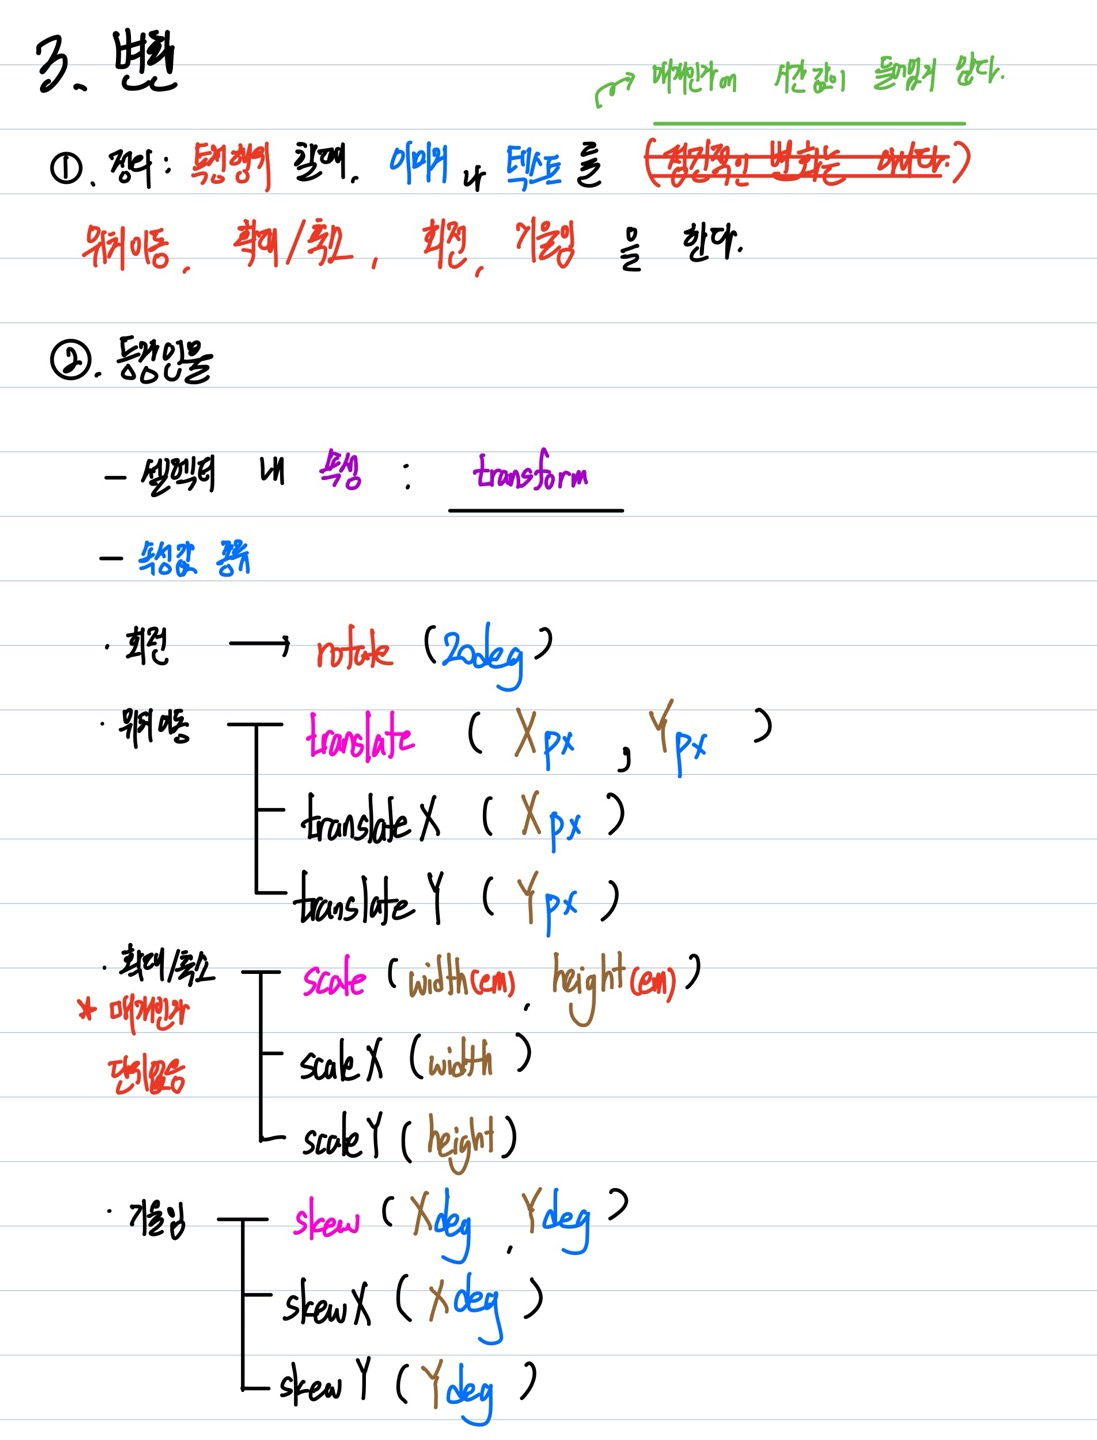 3. 변환
매개인자에 시간 값이 들어있지 않다.
①. 정의 : 특정행위 할때, 이미지 나 텍스트 를 (점진적인 변화는 아니다.)
위치이동, 확대/축소, 회전, 기울임 을 한다.
②. 등장인물
- 셀렉터 내 속성 : transform
- 속성값 종류
· 회전 → rotate (20deg)
· 위치이동 translate ( Xpx , Ypx )
translateX ( Xpx )
translateY ( Ypx )
· 확대/축소 scale ( width(em), height(em) )
* 매개인자
단위없음
scaleX (width )
scaleY ( height )
· 기울임 skew ( Xdeg , Ydeg )
skewX ( Xdeg )
skewY ( Ydeg )